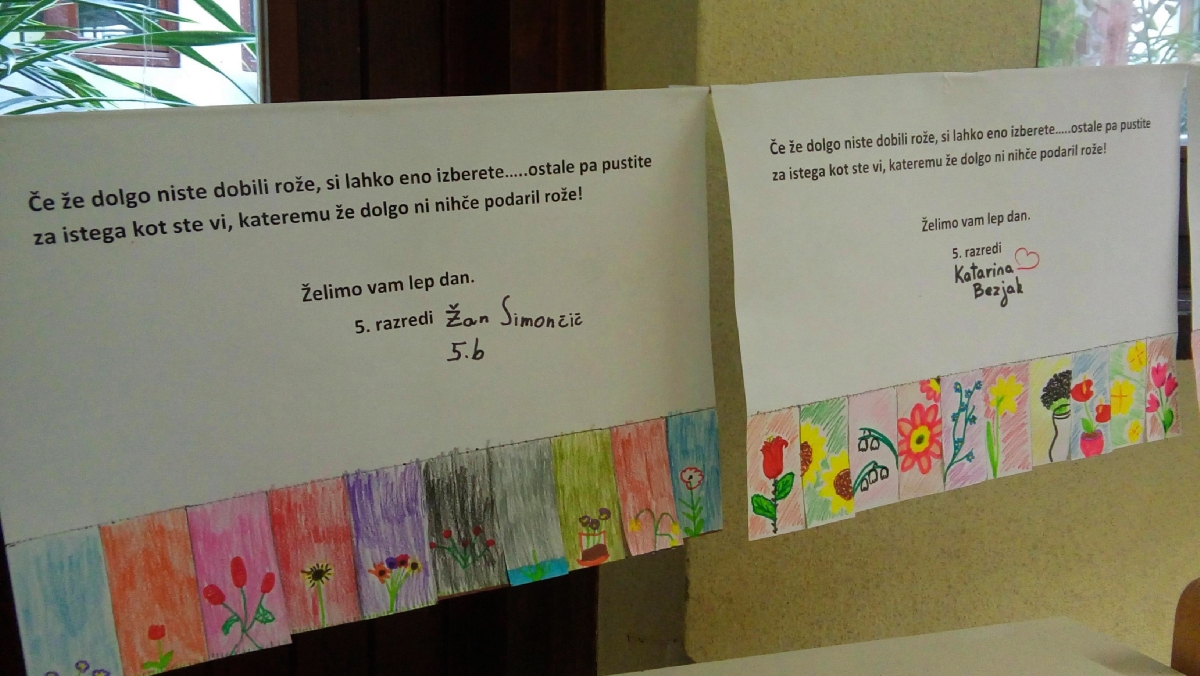 Če že dolgo niste dobili rože, si lahko eno izberete.....ostale pa pustite
za istega kot ste vi, kateremu že dolgo ni nihče podaril rože!
Želimo vam lep dan.
5. razredi Žan Simončič
5.b
Če že dolgo niste dobili rože, si lahko eno izberete.....ostale pa pustite
za istega kot ste vi, kateremu že dolgo ni nihče podaril rože!
Želimo vam lep dan.
5. razredi
Katarina
Bezjak